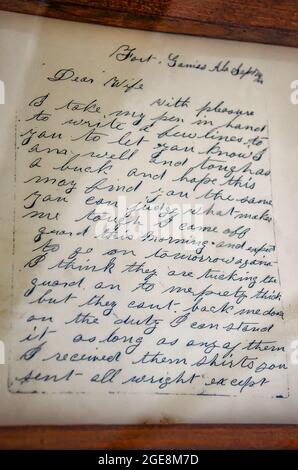 Fort. Gaines Ala Sept
Dear Wife
I take with pleasure
my pen in hand
to write a few lines to
you to let you know I
am well and tough as
a buck and hope this
may find you the same
you can judge what makes
me tough I came off
guard this morning and expect
to go on tomorrow again
I think they are tucking the
guard on to me pretty thick
but they cant back me down
on the duty I can stand
it as long as any of them
I received them shirts you
sent all wright except
alamy
Image ID: 2GE8M7D
www.alamy.com